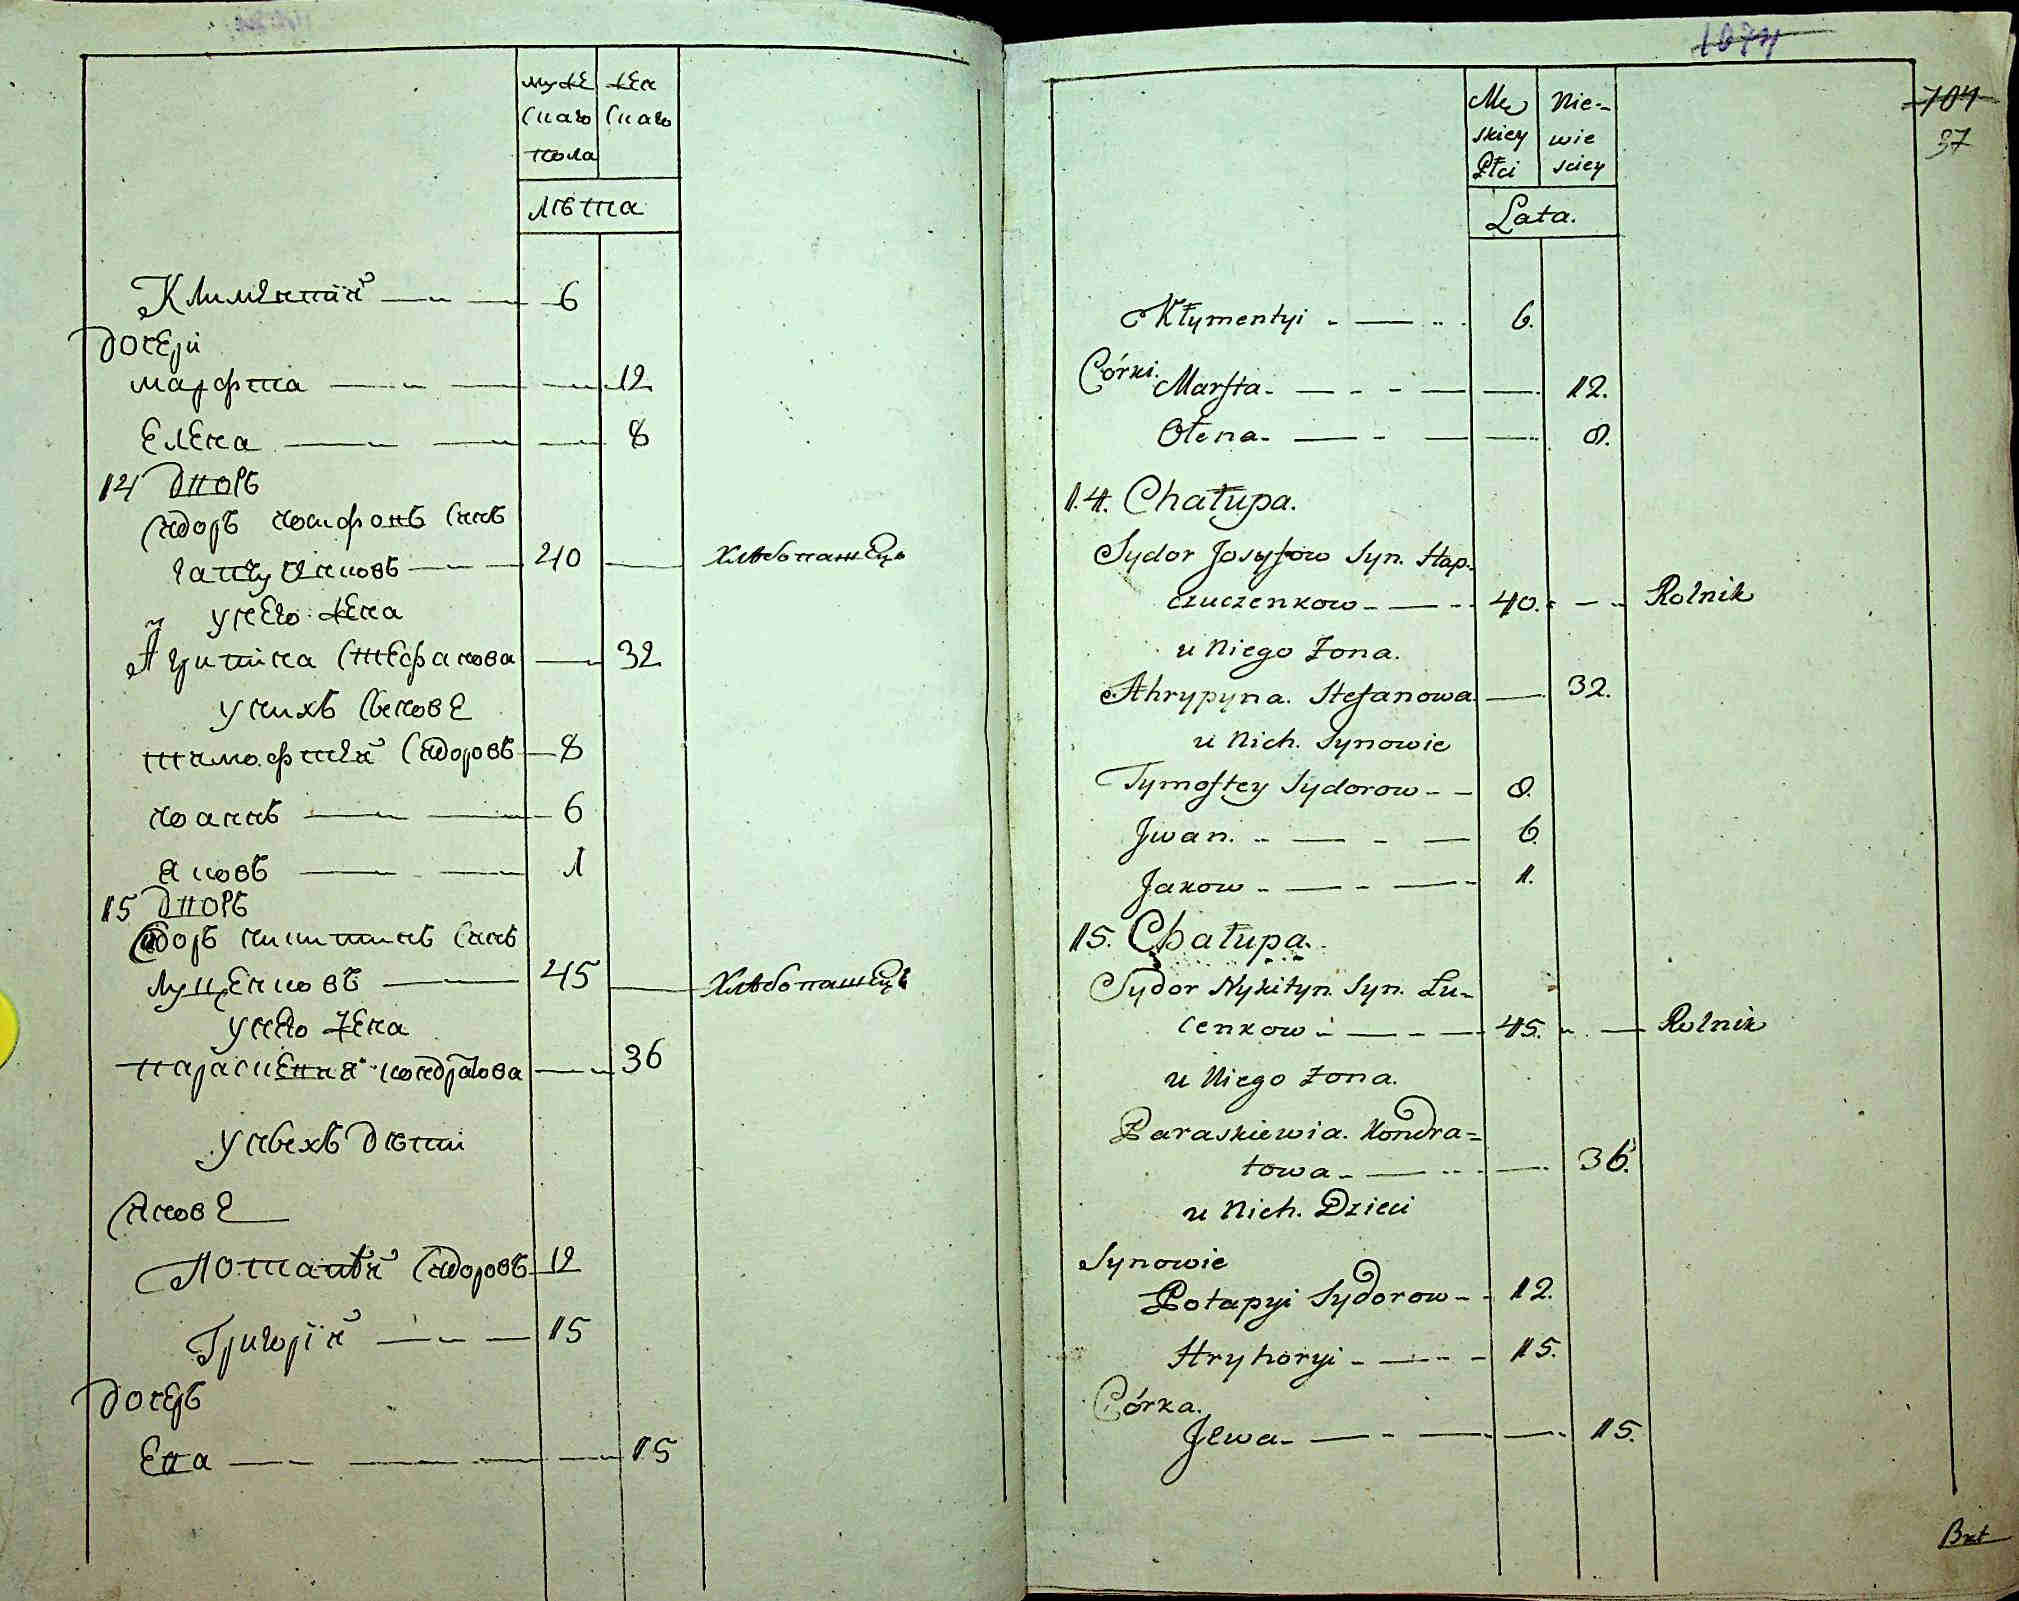 муже жен
скаго скаго
пола
лѣта
Климентий 6
дочери
марфта 12
Елена 8
14 дворъ
Сидоръ иосифовъ синъ
40 Хлѣбопашецъ
у него жена
Агрипина Стефанова 32
у нихъ синове
тимофтей Сидоровъ 8
иоаннъ 6
яковъ 1
15 дворъ
Сидоръ никитинъ синъ
Луценковъ 45 Хлѣбопашецъ
у него жена
параскевия кондратова 36
у нихъ дѣти
Синове
Потапий Сидоровъ 12
Григорий 15
дочеръ
Ева 15
1074
704
37
Mę Nie-
skiey wie
Płci sciey
Lata.
Kłymentyi 6.
Córki.
Marfta 12.
Ołena 8.
14. Chałupa.
Sydor Josyfow Syn. Hap-
czuczenkow 40. Rolnik
u Niego Zona.
Ahrypyna. Stefanowa 32.
u Nich. Synowie
Tymoftey Sydorow 8.
Jwan. 6
Jakow 1.
15. Chałupa.
Sydor Nykityn. Syn. Łu-
cenkow 45. Rolnik
u Niego Zona.
Paraskiewia. Kondra=
towa 36.
u Nich. Dzieci
Synowie
Potapyi Sydorow 12.
Hryhoryi 15.
Córka.
Jewa 15.